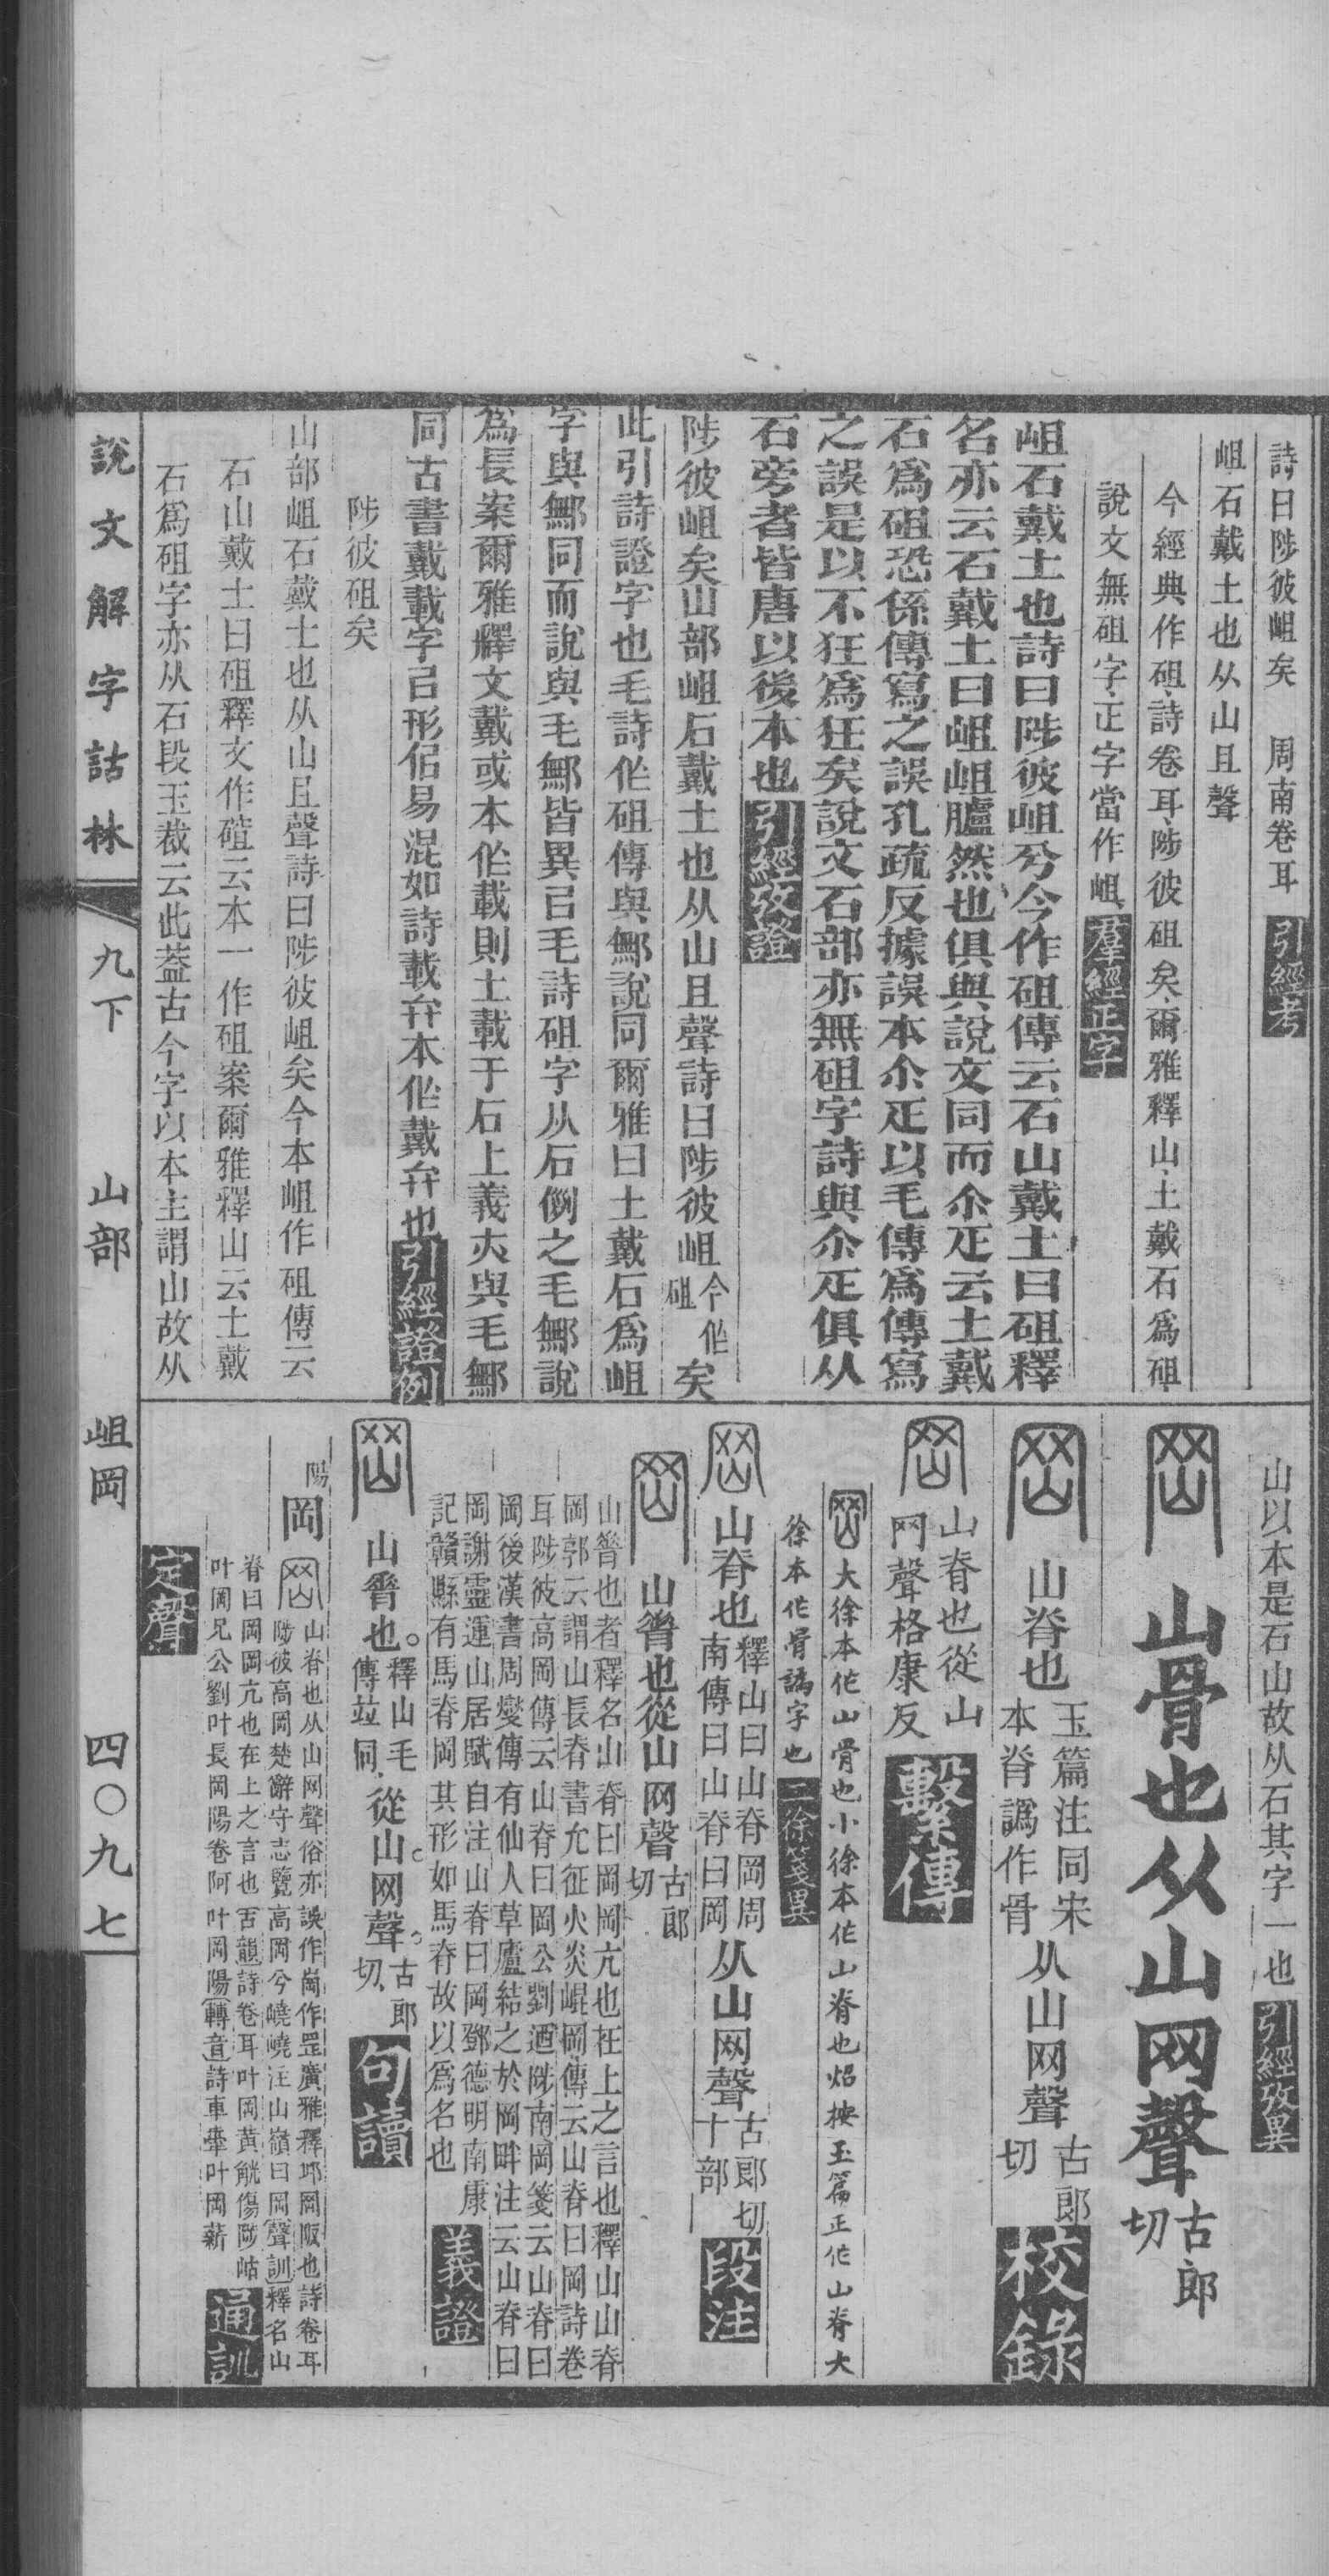 詩曰陟彼岨矣　周南卷耳　引經考
岨石戴土也从山且聲
今經典作砠詩卷耳陟彼砠矣爾雅釋山土戴石爲砠
說文無砠字正字當作岨　羣經正字
岨石戴土也詩曰陟彼岨兮今作砠傳云石山戴土曰砠釋
名亦云石戴土曰岨岨臚然也俱與說文同而尒疋云土戴
石爲砠恐係傳寫之誤孔疏反據誤本尒疋以毛傳爲傳寫
之誤是以不狂爲狂矣說文石部亦無砠字詩與尒疋俱从
石旁者皆唐以後本也　引經攷證
陟彼岨矣山部岨石戴土也从山且聲詩曰陟彼岨今作砠矣
此引詩證字也毛詩作砠傳與鄦說同爾雅曰土戴石爲岨
字與鄦同而說與毛鄦皆異㠯毛詩砠字从石例之毛鄦說
爲長案爾雅釋文戴或本作載則土載于石上義亣與毛鄦
同古書戴載字㠯形侣易混如詩載弁本作戴弁也　引經證例
陟彼砠矣
山部岨石戴土也从山且聲詩曰陟彼岨矣今本岨作砠傳云
石山戴土曰砠釋文作碴云本一作砠案爾雅釋山云土戴
石爲砠字亦从石段玉裁云此蓋古今字以本主謂山故从
山以本是石山故从石其字一也　引經攷異
山骨也从山网聲古郎切
山脊也玉篇注同宋本脊譌作骨从山网聲古郎切　校錄
山脊也從山网聲格康反　繫傳
大徐本作山骨也小徐本作山脊也炤按玉篇正作山脊大
徐本作骨譌字也　二徐箋異
山脊也釋山曰山脊岡周南傳曰山脊曰岡从山网聲古郎切十部　段注
山脊也從山网聲古郎切
山脊也者釋名山脊曰岡岡亢也在上之言也釋山山脊
岡郭云謂山長脊書允征火炎崐岡傳云山脊曰岡詩卷
耳陟彼高岡傳云山脊曰岡公劉迺陟南岡箋云山脊曰
岡後漢書周燮傳有仙人草廬結之於岡畔注云山脊曰
岡謝靈運山居賦自注山脊曰岡鄧德明南康
記贛縣有馬脊岡其形如馬脊故以爲名也　義證
山脊也。釋山毛傳竝同從山。网聲。古郎切　句讀
陽
岡　山脊也从山网聲俗亦誤作崗作罡廣雅釋邱岡阪也詩卷耳
陟彼高岡楚辭守志覽高岡兮嶢嶢注山嶺曰岡聲訓釋名山
脊曰岡岡亢也在上之言也古韻詩卷耳叶岡黃觥傷陟岵
叶岡兄公劉叶長岡陽卷阿叶岡陽轉音詩車舝叶岡薪　通訓
定聲
說文解字詁林　九下　山部　岨岡　四〇九七